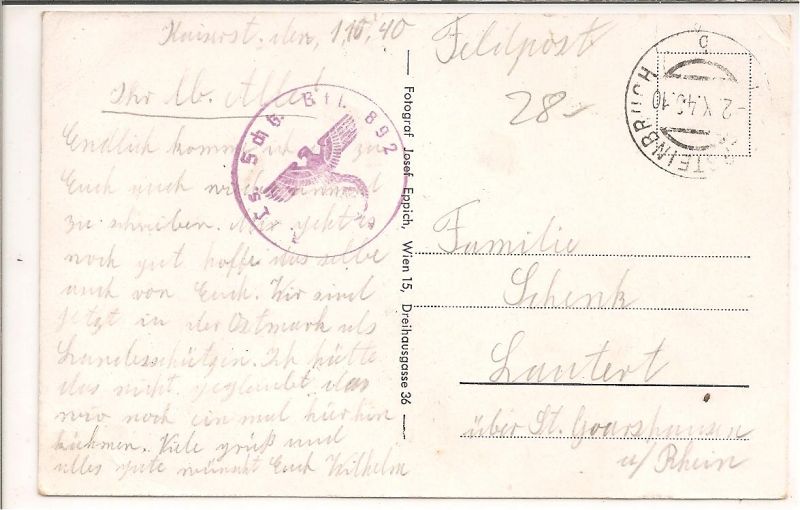 Kaiserst. den, 1.10.40
Ihr lb. Alle!
Endlich komme ich zu
Euch auch wieder einmal
zu schreiben. Mir geht es
noch gut hoffe das selbe
auch von Euch. Wir sind
jetzt in der Ostmark als
Landesschützen. Ich hätte
das nicht geglaubt das
wir noch einmal hierhin
kähmen. Viele grüß und
alles gute wünscht Euch Wilhelm
Ls. Sch. Btl. 892
Fotograf Josef Eppich, Wien 15, Dreihausgasse 36
Feldpost
28-
STEINBRUCH
-2.X.40.10
b
Familie
Schenk
Lautert
über St. Goarshausen
a/Rhein